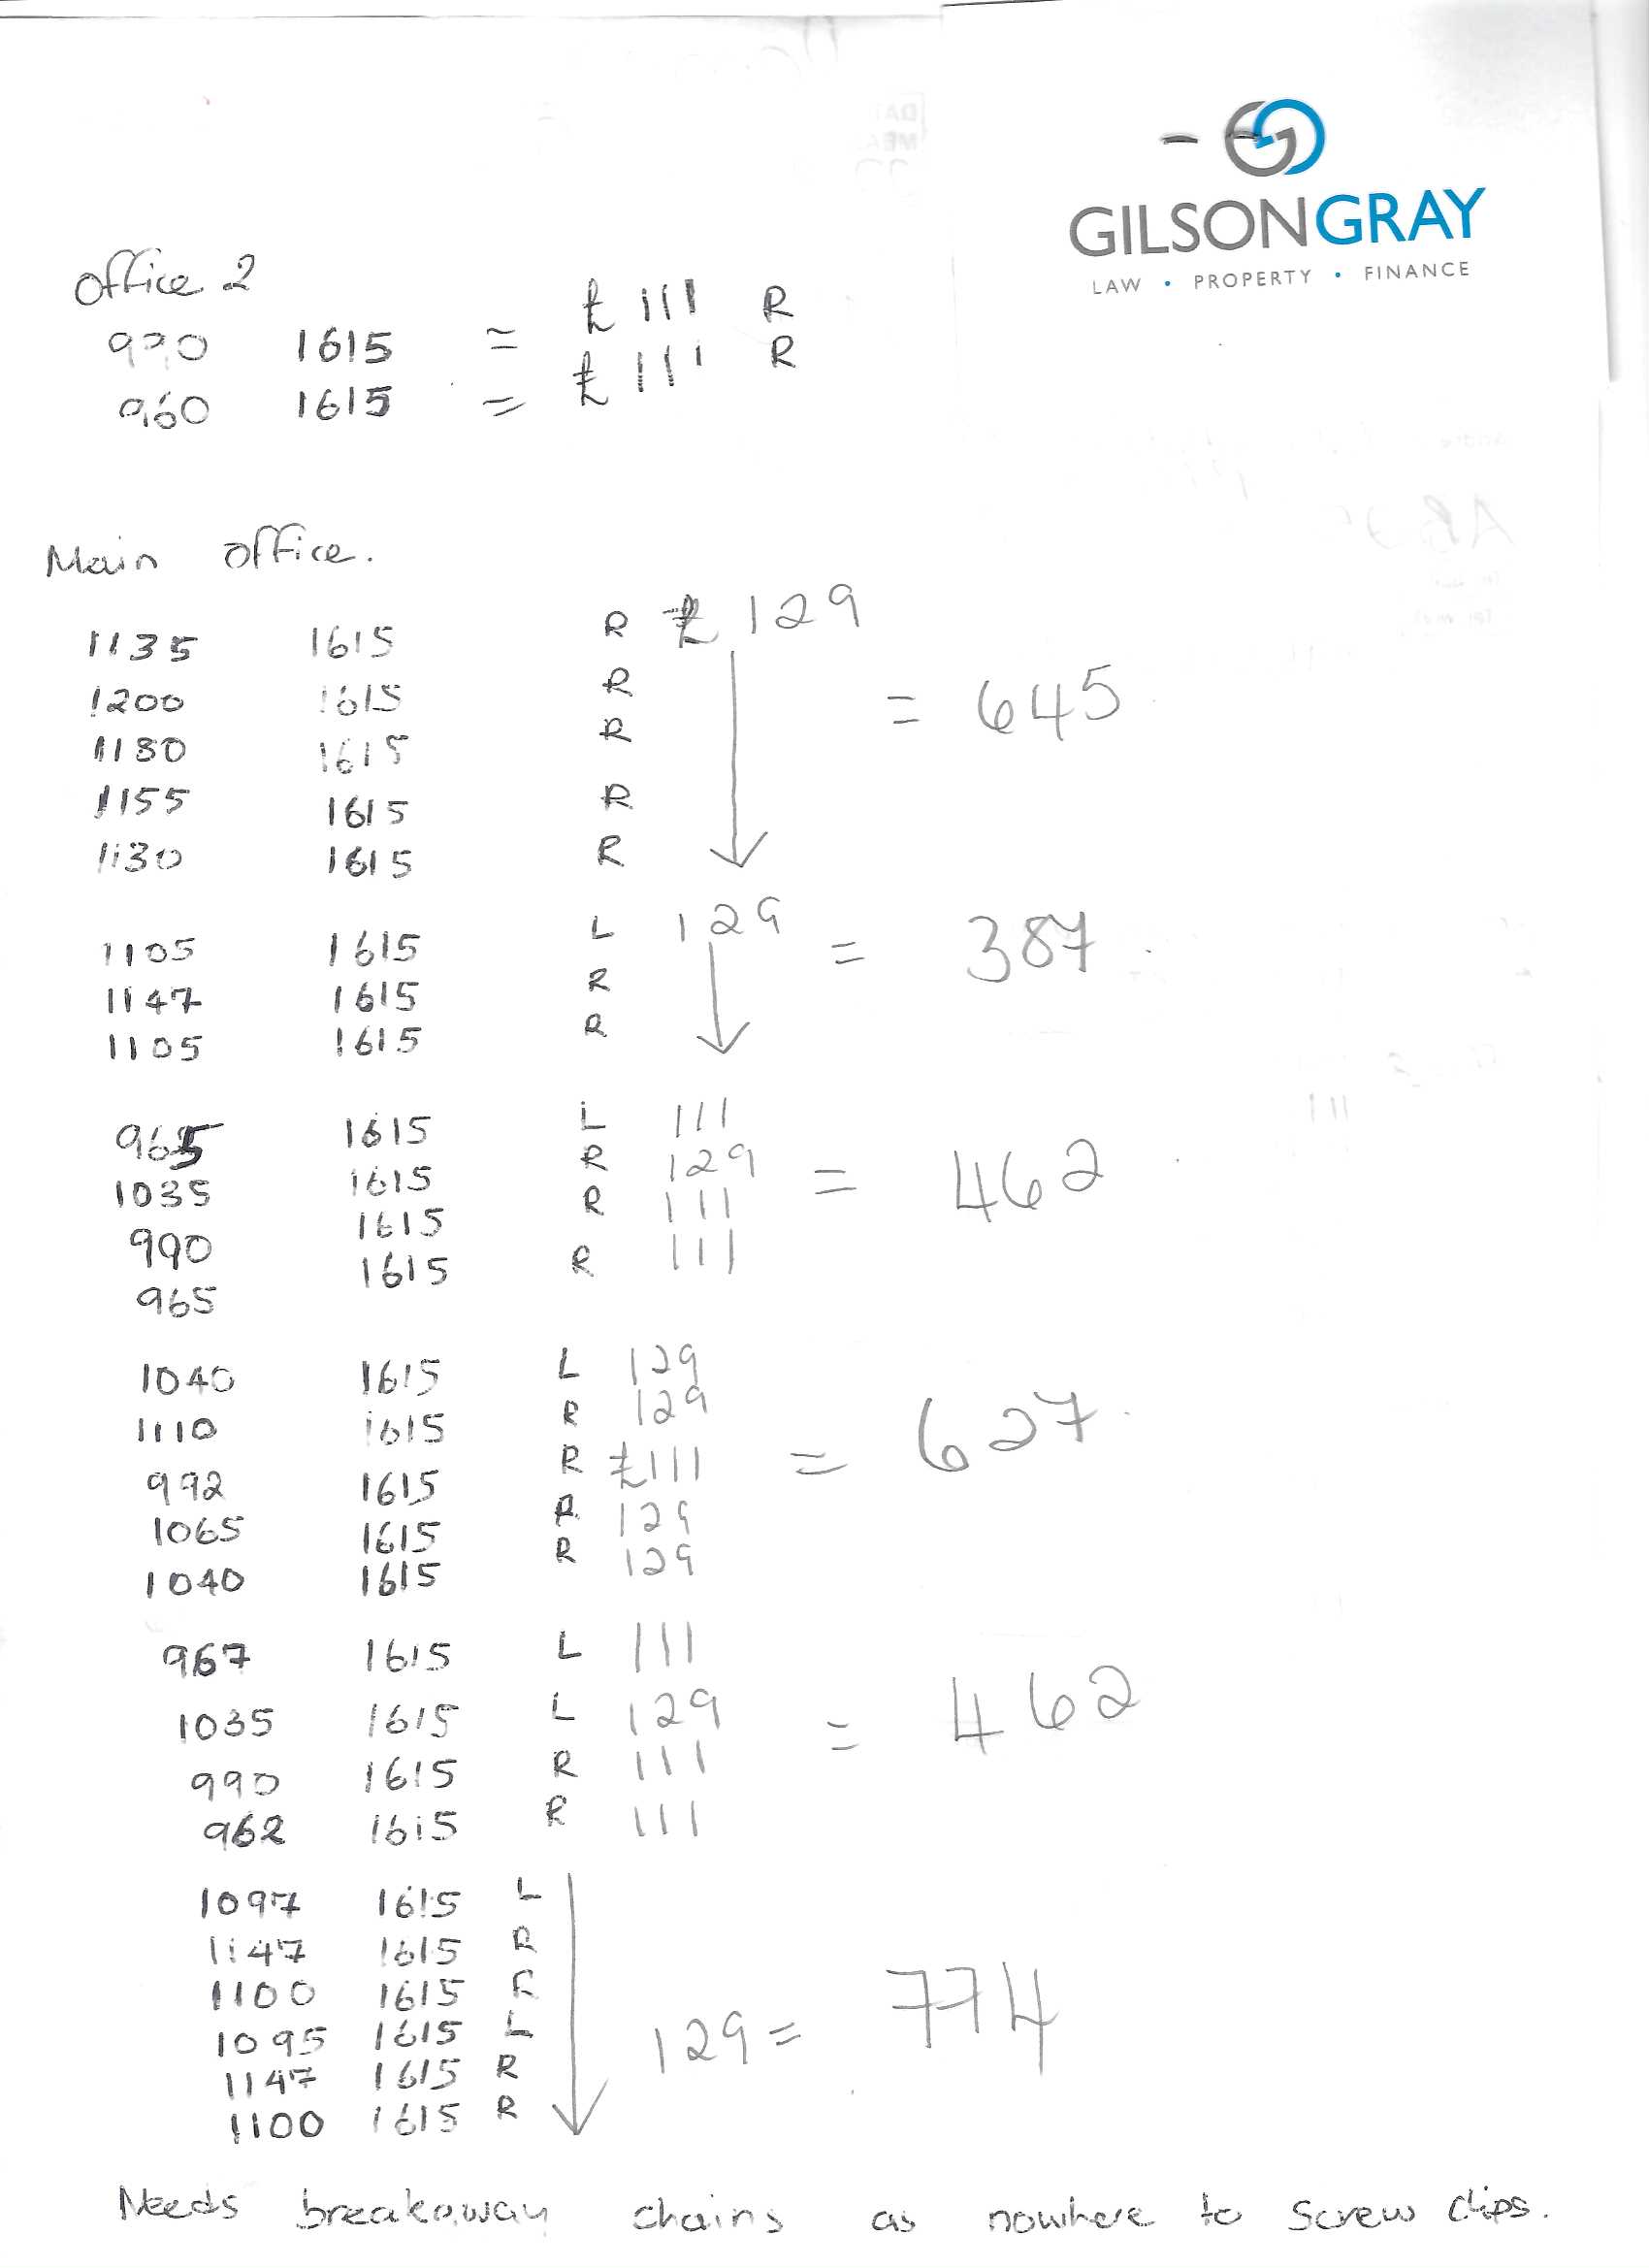 GILSONGRAY
LAW • PROPERTY • FINANCE
Office 2
990 1615 = £111 R
960 1615 = £111 R
Main office.
1135 1615 R £129
1200 1615 R
1180 1615 R = 645
1155 1615 R
1130 1615 R
1105 1615 L 129 = 387
1147 1615 R
1105 1615 R
965 1615 L 111
1035 1615 R 129 = 462
990 1615 R 111
965 1615 R 111
1040 1615 L 129
1110 1615 R 129
992 1615 R £111 = 627
1065 1615 R 129
1040 1615 R 129
967 1615 L 111
1035 1615 L 129 = 462
990 1615 R 111
962 1615 R 111
1097 1615 L
1147 1615 R
1100 1615 R
1095 1615 L 129 = 774
1147 1615 R
1100 1615 R
Needs breakaway chains as nowhere to screw clips.